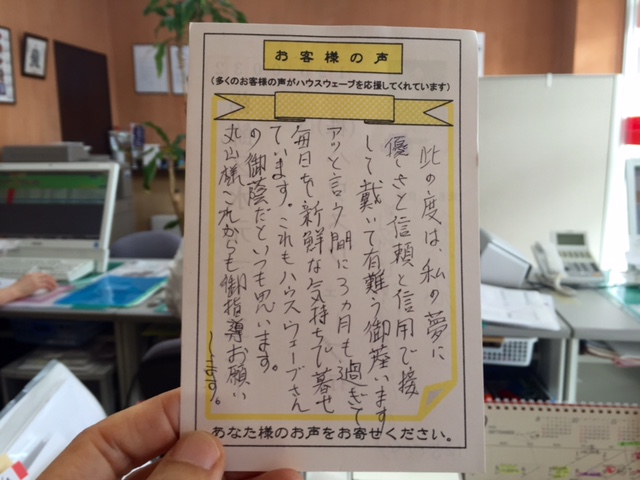 お客様の声
(多くのお客様の声がハウスウェーブを応援してくれています)
此の度は、私の夢に
優しさと信頼と信用で接
して戴いて有難う御座います
アッと言う間に3ヵ月も過ぎて
毎日を新鮮な気持ちで暮せ
ています。これもハウスウェーブさん
の御蔭だといつも思います。
丸山様これからも御指導お願い
します。
あなた様のお声をお寄せください。